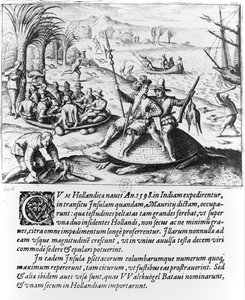 QVæ Hollandica naues An. 1598. in Indiam expedirentur,
in transitu Insulam quandam, Mauritij dictam, occupa-
runt: qua testudines peltatas tam grandes ferebat, vt super
vna duo insidentes Hollandi, non secus ac ne minimũ gra-
uies, citra omne impedimentum longè proferrentur. Illarum nonnulla ad
eam vsque magnitudinẽ crescunt, vt in vniue auulsa testa decem viri
commodè sedere & epulari potuerint.
In eadem Insula psittacorum columbarumque numerum quoq;
maximum repererunt, tam cicurum, vt fustibus eas prostrauerint. Sed
& alia ibidem aues visa sunt, quas VValckvogel Batani nominarunt, &
vnam secum in Hollandiam importarunt.